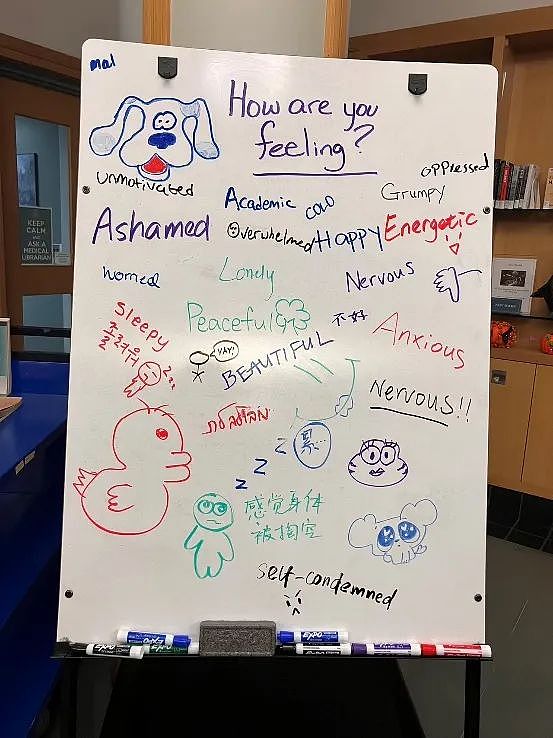 mal
How are you
feeling?
unmotivated
oppressed
Academic
Grumpy
Ashamed
Overwhelmed
Happy
Energetic
worried
Lonely
Nervous
Peaceful
不好
sleepy
YAY!
BEAUTIFUL
Anxious
Nervous!!
z
z
z
感觉身体
被掏空
self-condemned
KEEP
CALM
AND
ASK A
MEDICAL
LIBRARIAN
EXPO
EXPO
EXPO
EXPO